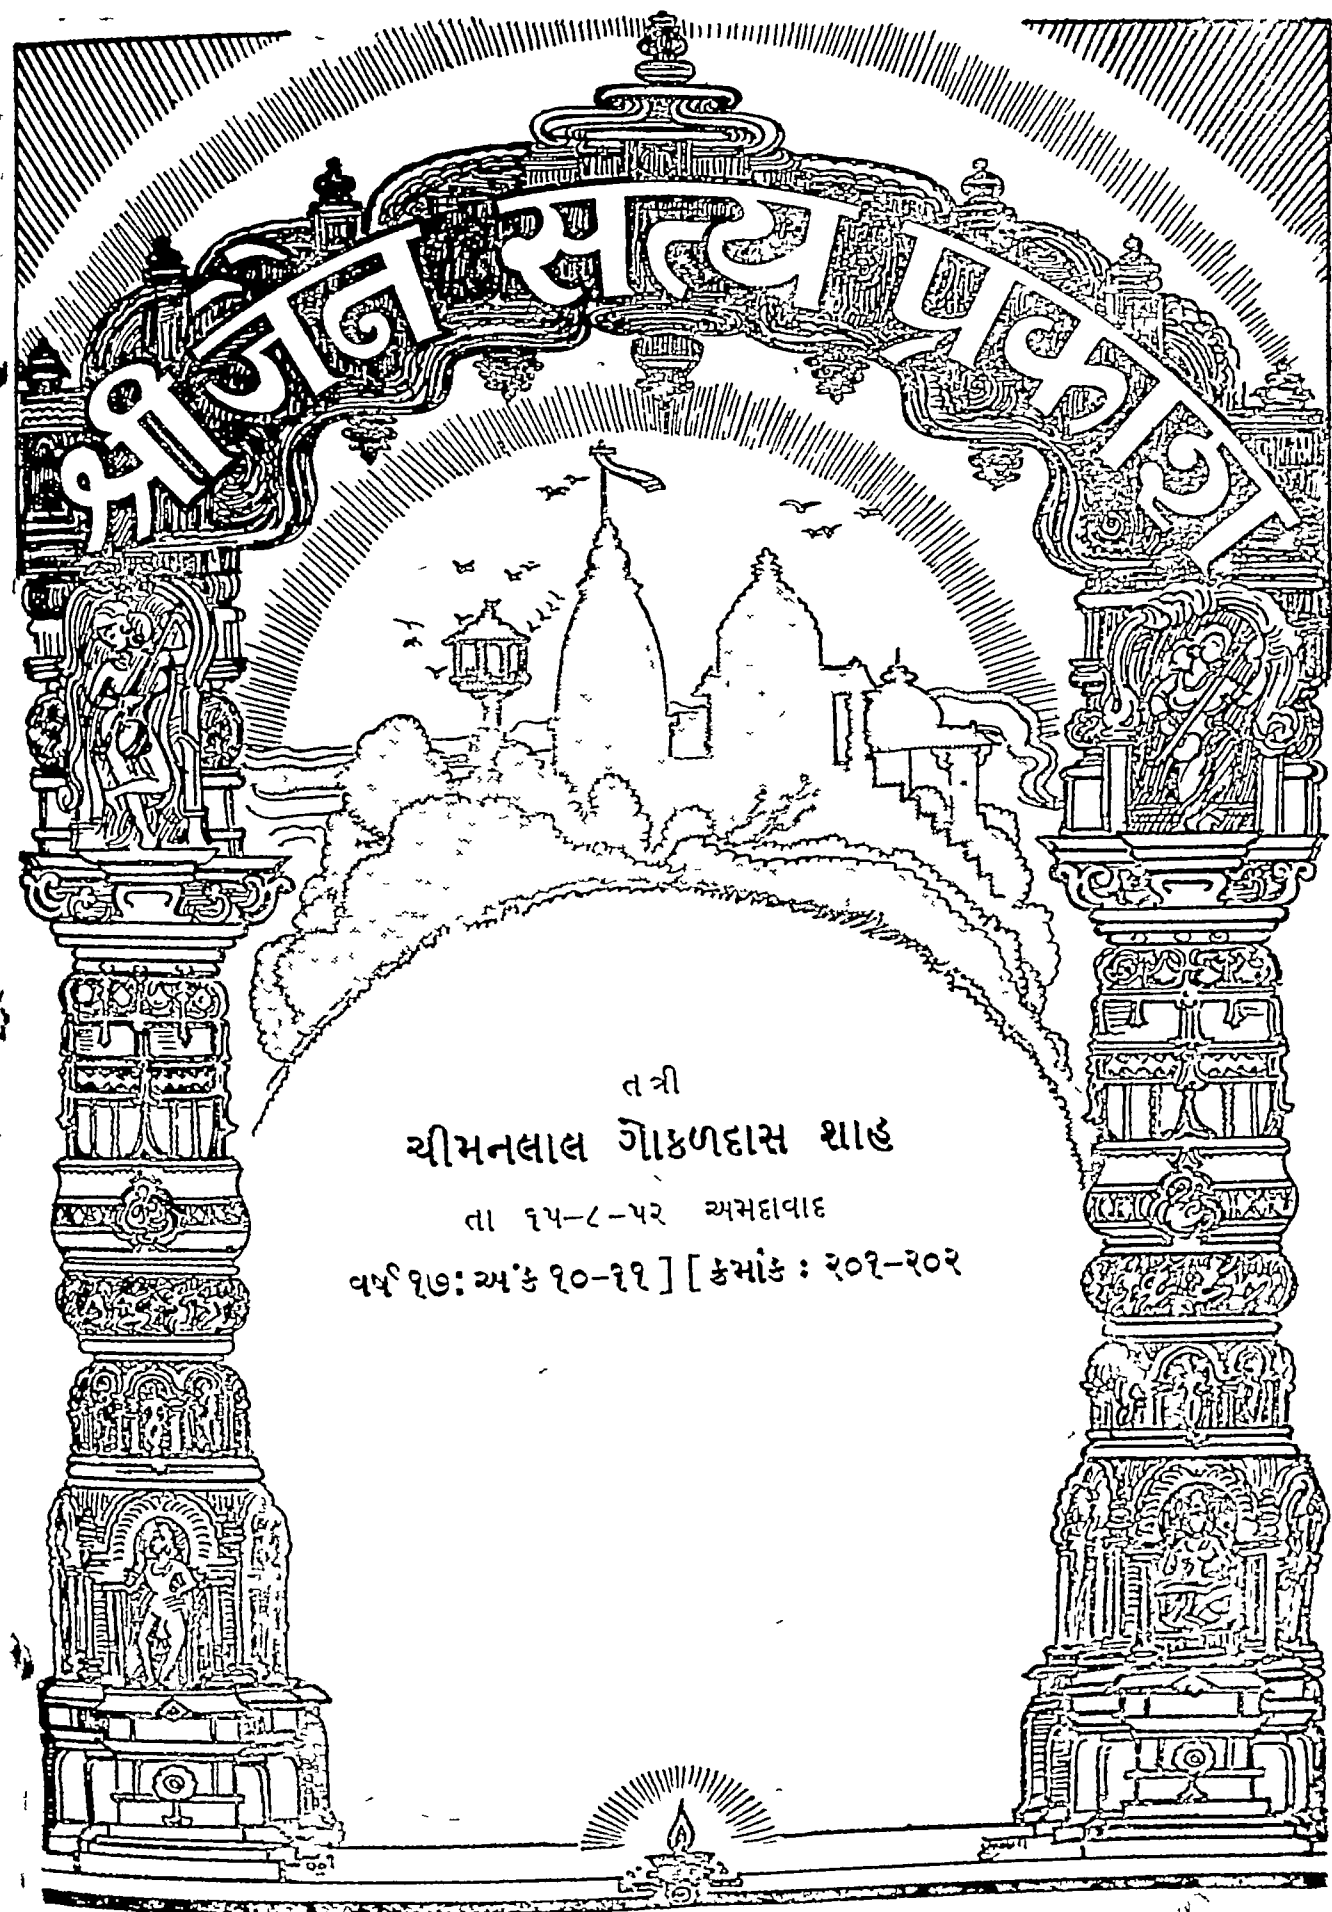 श्री जैन सत्य प्रकाश
તંત્રી
ચીમનલાલ ગોકળદાસ શાહ
તા ૧૫-૮-૫૨ અમદાવાદ
વર્ષ ૧૭ : અંક ૧૦-૧૧ ] [ ક્રમાંક : ૨૦૧-૨૦૨